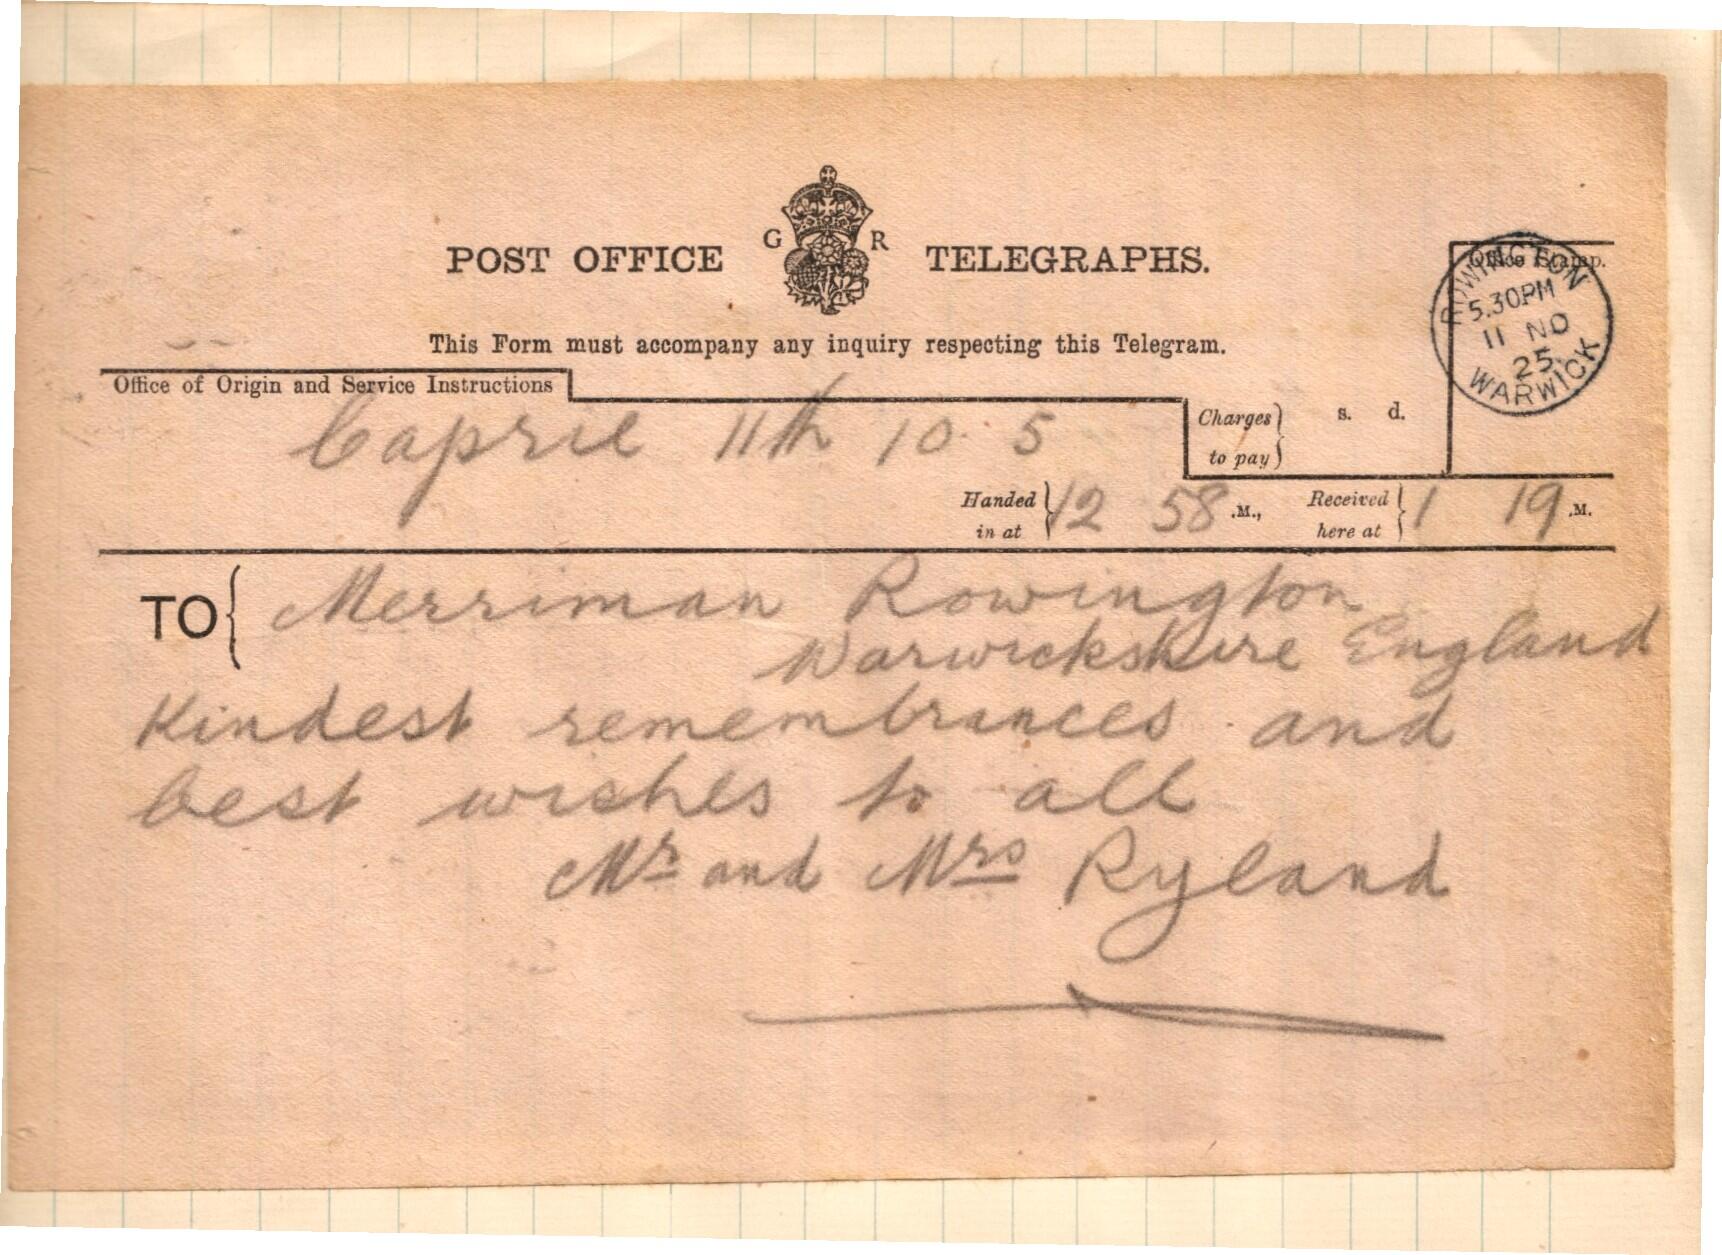 POST OFFICE G R TELEGRAPHS.
Office Stamp.
ROWINGTON
5.30PM
11 NO
25
WARWICK
This Form must accompany any inquiry respecting this Telegram.
Office of Origin and Service Instructions
Caprie 11th 10 5
Charges to pay } s. d.
Handed in at } 12 58 .M., Received here at } 1 19 .M.
TO { Merriman Rowington
Warwickshire England
Kindest remembrances and
best wishes to all
Mr and Mrs Ryland